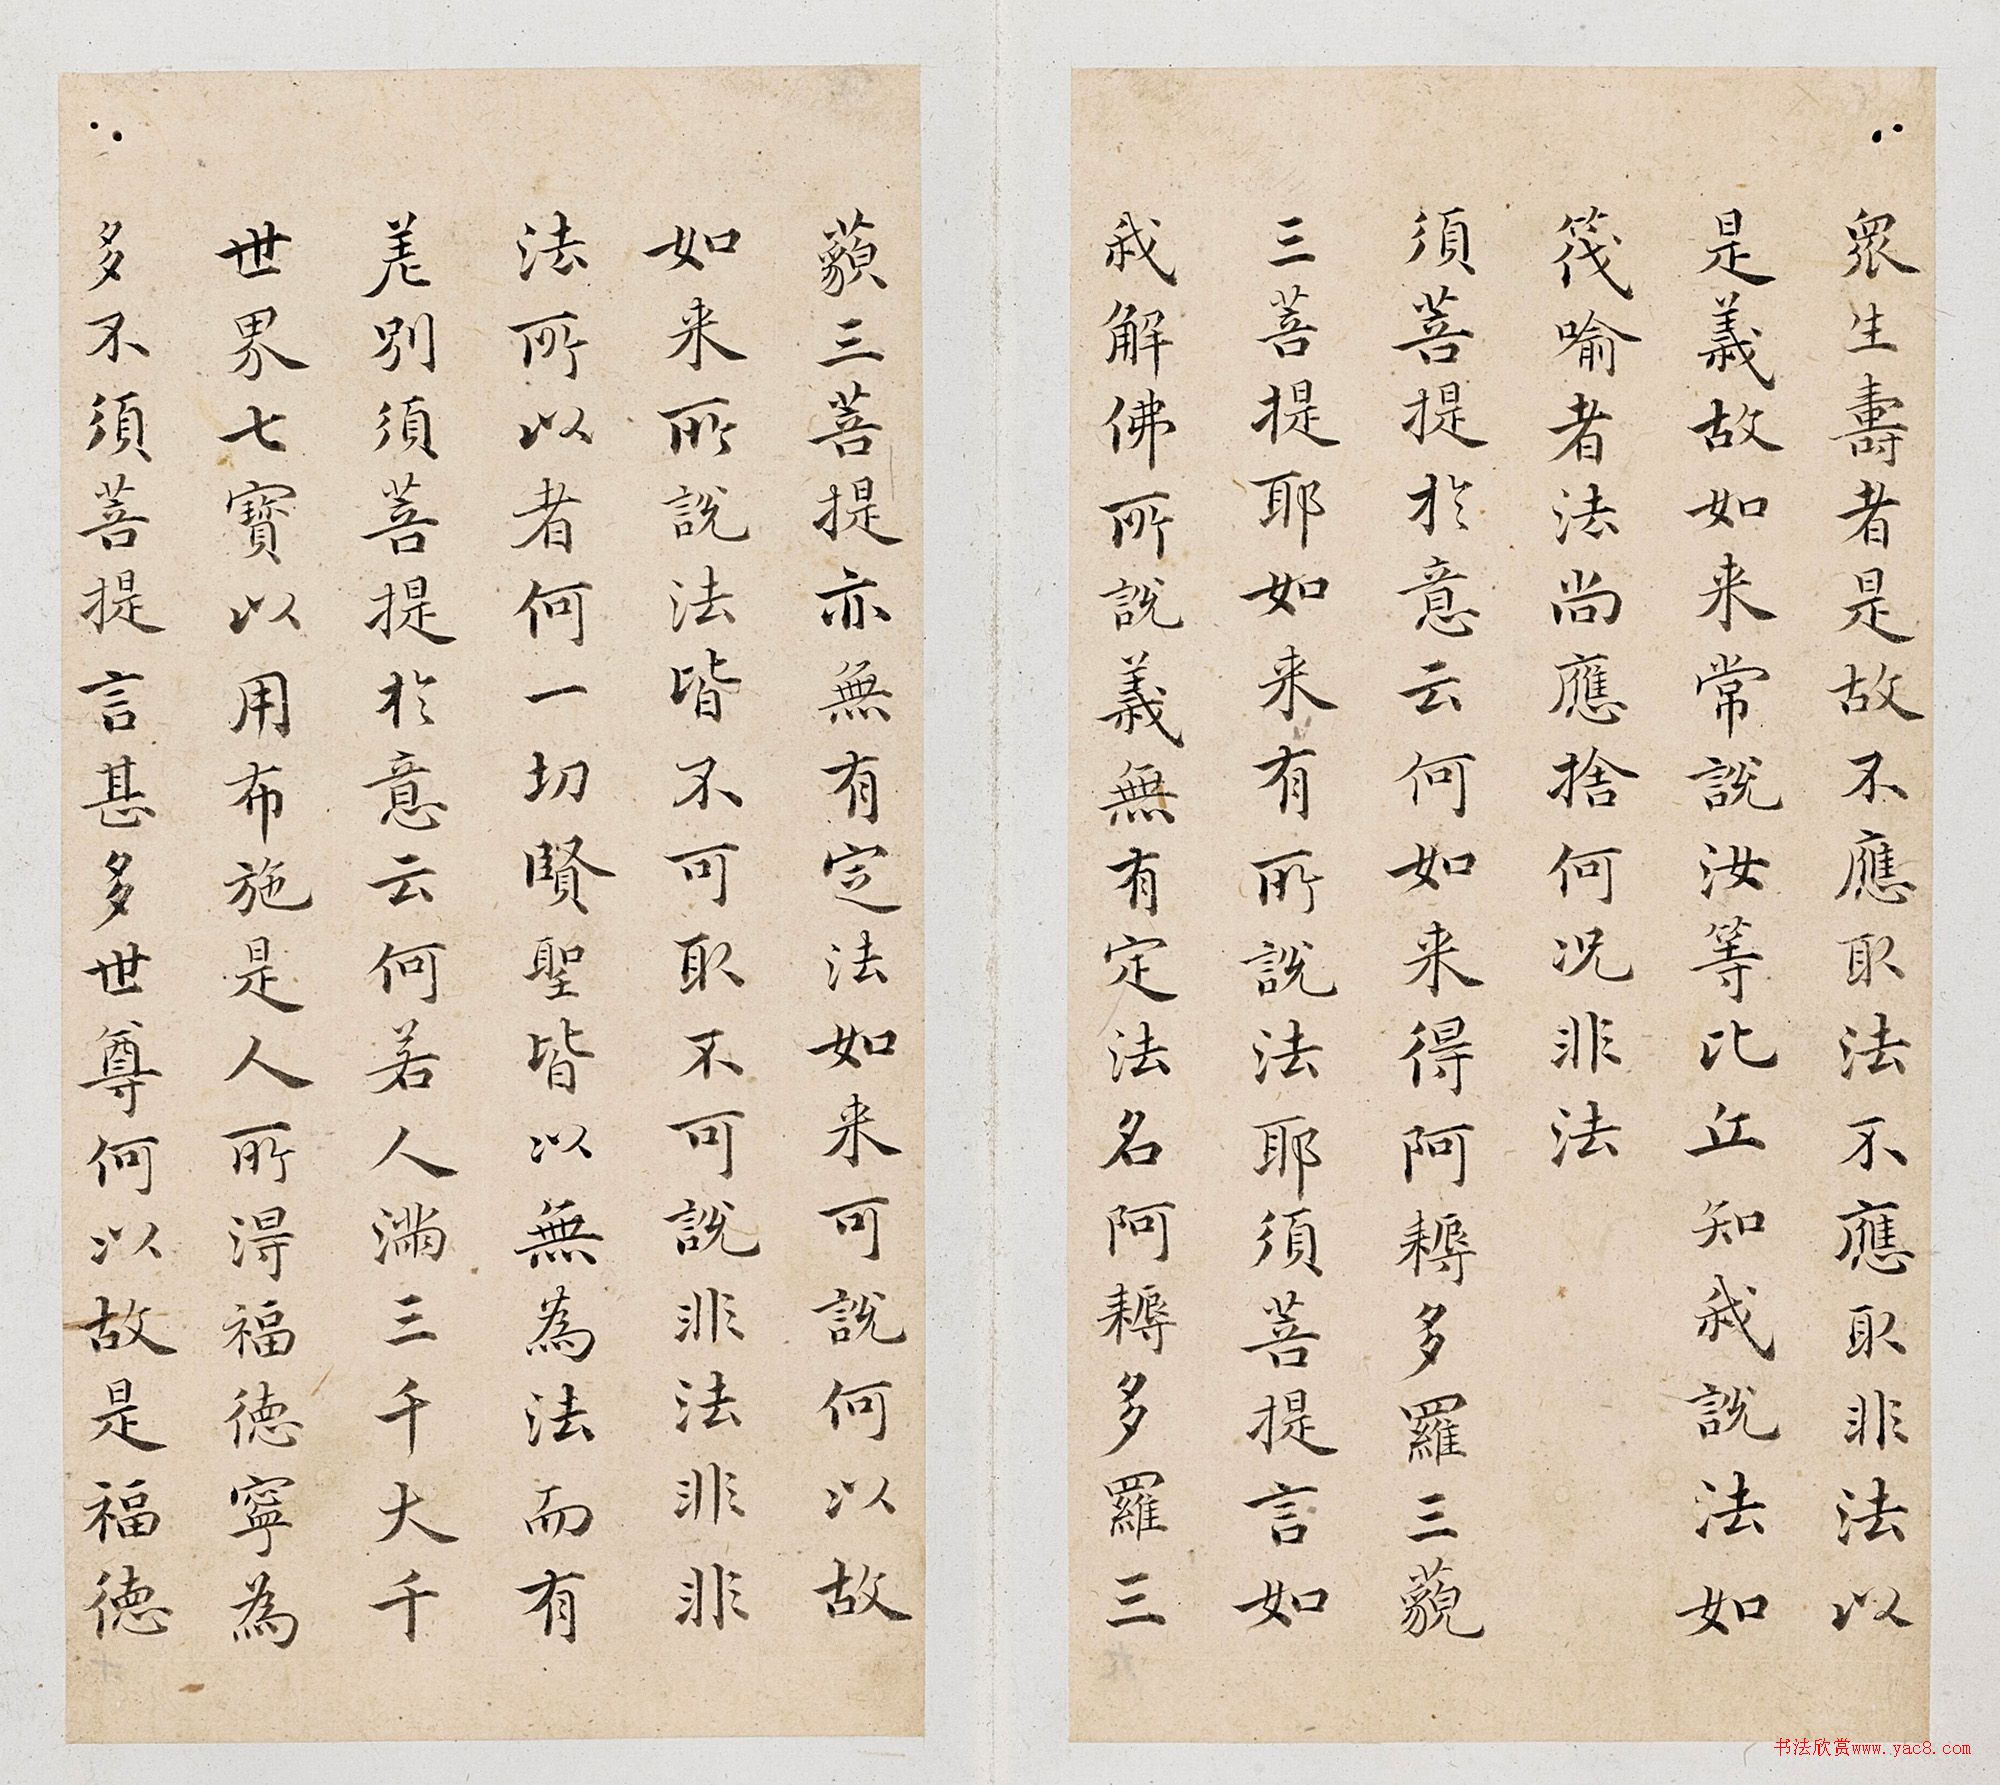 眾生壽者是故不應取法不應取非法以
是義故如来常說汝等比丘知我說法如
筏喻者法尚應捨何況非法
須菩提於意云何如来得阿耨多羅三藐
三菩提耶如来有所說法耶須菩提言如
我解佛所說義無有定法名阿耨多羅三
藐三菩提亦無有定法如来可說何以故
如来所說法皆不可取不可說非法非非
法所以者何一切賢聖皆以無為法而有
差別須菩提於意云何若人滿三千大千
世界七寶以用布施是人所得福德寧為
多不須菩提言甚多世尊何以故是福德
书法欣赏www.yac8.com